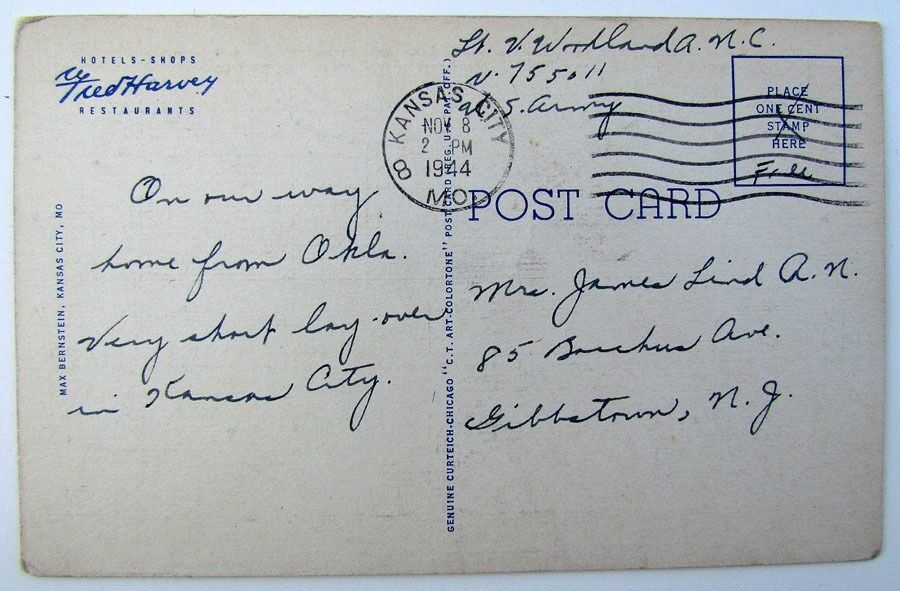 HOTELS-SHOPS
Fred Harvey
RESTAURANTS
On our way
home from Okla.
Very short lay-over
in Kansas City.
MAX BERNSTEIN, KANSAS CITY, MO
GENUINE CURTEICH-CHICAGO "C.T. ART-COLORTONE" POST CARD (REG. U.S. PAT. OFF.)
Lt. V. Woodland A.N.C.
N-755011
U.S. Army
KANSAS CITY
NOV 8
2 PM
1944
MO.
8
PLACE
ONE CENT
STAMP
HERE
Free
POST CARD
Mrs. James Lind A.N.
85 Bacchus Ave.
Gibbstown, N.J.